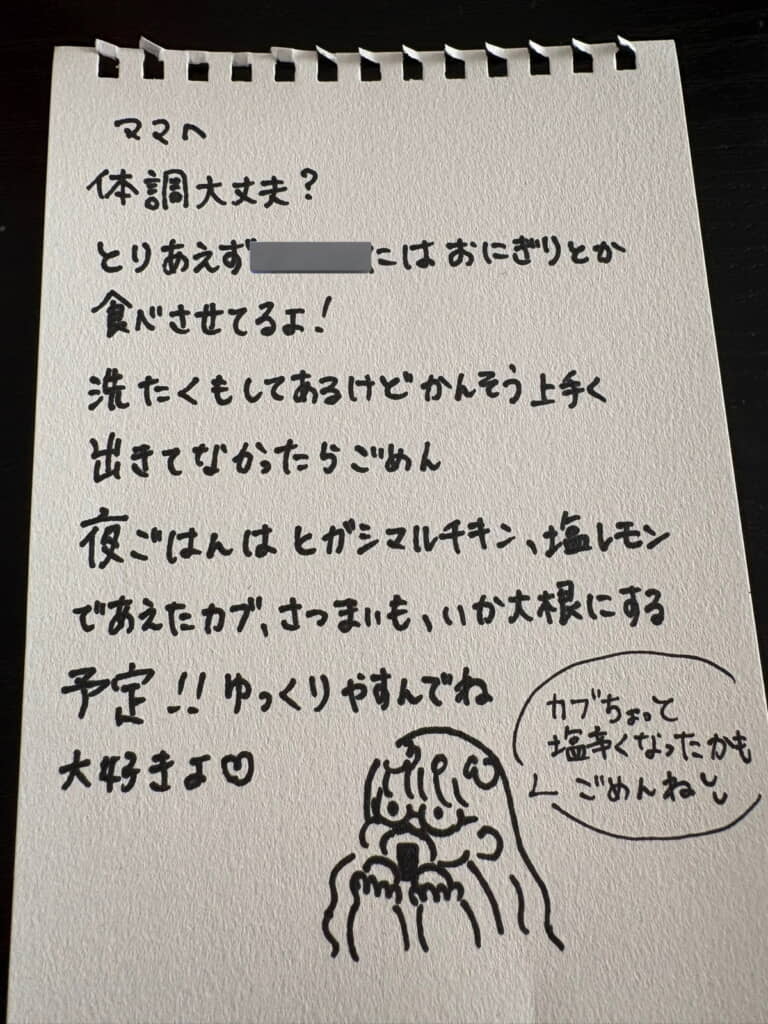 ママへ
体調大丈夫?
とりあえず こはおにぎりとか
食べさせてるよ!
洗たくもしてあるけどかんそう上手く
出きてなかったらごめん
夜ごはんはヒガシマルチキン、塩レモン
であえたカブ、さつまいも、いか大根にする
予定!!ゆっくりやすんでね
大好きよ♡
カブちょっと
塩辛くなったかも
ごめんね